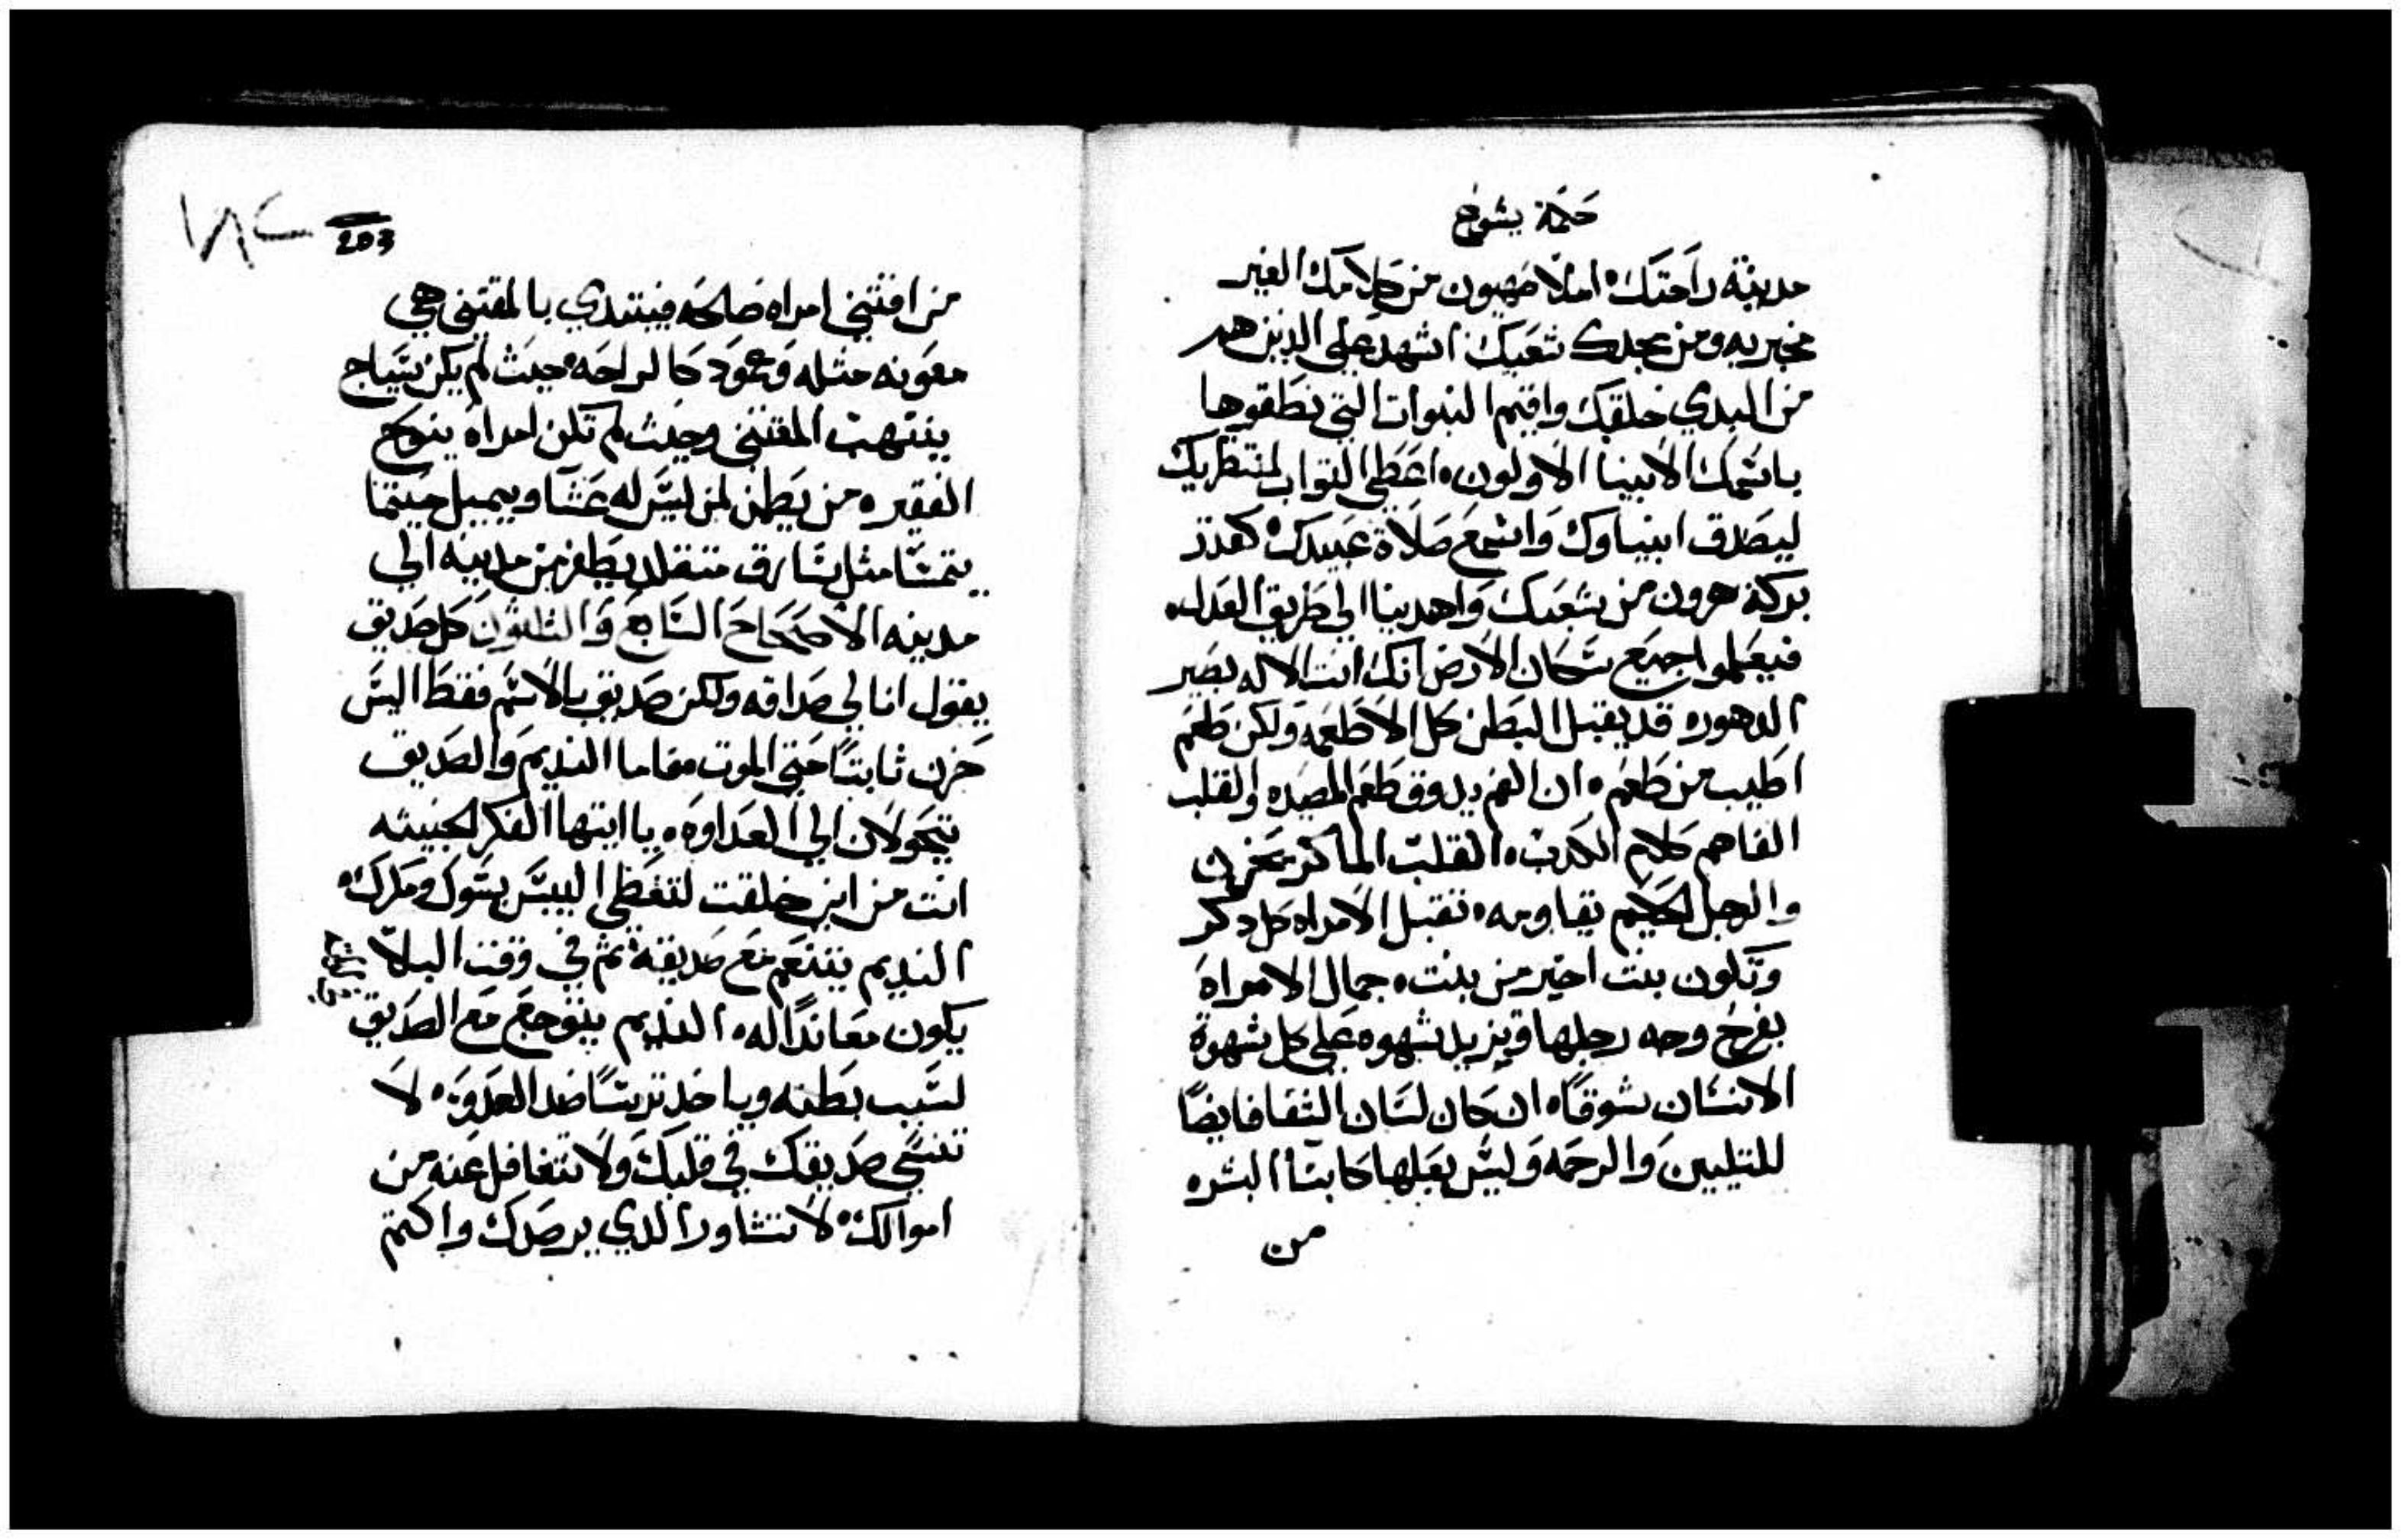 حكمة يشوع
مدينة راحتك ۰ املا صهيون من كلامك الغير
مخبر به ومن مجدك شعبك ۰ اشهد على الذين هم
من البدي خلقتك واقيم النبوات التي نطقوها
باسمك الانبيا الاولون ۰ اعطي التواب لمنتظريك
ليصدق انبياوك واسمع صلاة عبيدك ۰ كقدر
بركة هرون من شعبك واهدينا الي طريق العدل ۰
فيعلموا جميع سكان الارض انك انت الاله بصير
الدهور ۰ قد يقبل البطن كل الاطعمه ولكن طعم
اطيب من طعم ۰ ان الفم يدوق طعم المصيده والقلب
الفاهم كلام الكدب ۰ القلب الماكر يحزن
والرجل الحكيم يقاومه ۰ تقبل الامراه كل دكر
وتكون بنت اخير من بنت ۰ جمال الامراه
يفرح وجه رجلها ويزيد شهوه على كل شهوة
الانسان شوقًا ۰ ان كان لسان الشفا فايضًا
للتليين والرحمه وليس بعلها كابنا البشر ۰
من
203
من اقتني امراه صالحه فيبتدي بالمقتني هي
معونه مثله وعمود كالراحه ۰ حيث لم يكن سياج
ينتهب المقتني وحيث لم تكن امراه ينوح
الفقير ۰ من يطمن لمن ليس له عشا ويميل حيثما
يتمسا مثل سارق متنقلد يطفر من مدينه الي
مدينه الاصحاح السابع والثلثون كل صديق
يقول انا لي صداقه ولكن صديق بالاسم فقط اليس
حزن ثابتًا حتي الموت مقاما النديم والصديق
يتحولان الي العداوه ۰ يا ايتها الفكر الخبيثه
انت من اين خلقت لتغطي اليبس بسوك ومكرك ۰
النديم يتنعم مع صديقة ثم في وقت البلا
يكون معاندًا له ۰ النديم يتوجع مع الصديق
لسبب بطنه وياخد ترسًا ضد العدو ۰ لا
تنسي صديقك في قلبك ولا تتغافل عنه من
اموالك ۰ لا تتشاور الدي يرصدك واكتم